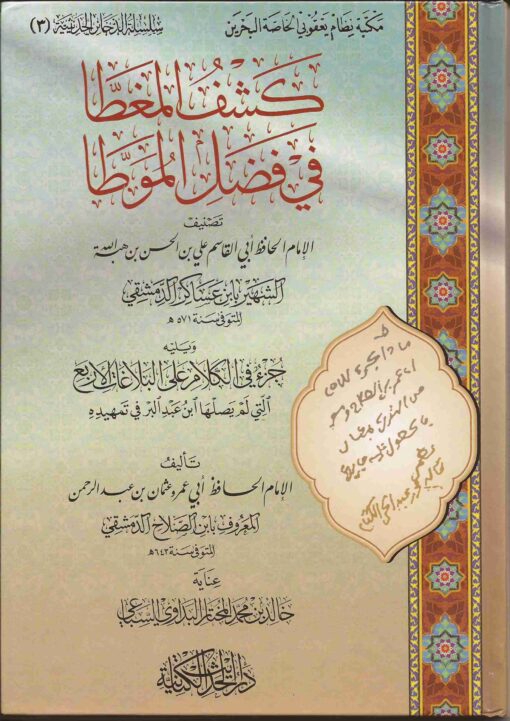 مكتبة نظام يعقوبي الخاصة البحرين
سلسلة الذخائر الحديثية (٣)
كشف المغطا
في فضل الموطا
تصنيف
الإمام الحافظ أبي القاسم علي بن الحسن بن هبة الله
الشهير بابن عساكر الدمشقي
المتوفى سنة ٥٧١ هـ
ويليه
جزء في الكلام على البلاغات الأربع
التي لم يصلها ابن عبد البر في تمهيده
تأليف
الإمام الحافظ أبي عمرو عثمان بن عبد الرحمن
المعروف بابن الصلاح الدمشقي
المتوفى سنة ٦٤٣ هـ
عناية
خالد بن محمد المختار البداوي السباعي
دار الحديث الكتانية